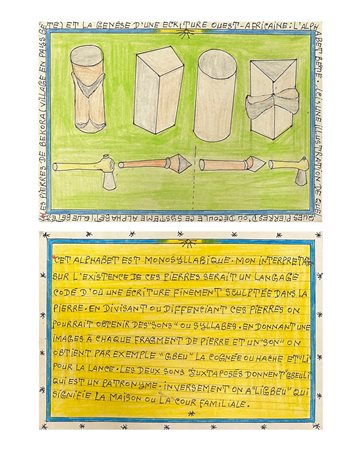 LES PIERRES DE BEKORA (VILLAGE EN PAYS
GETE) ET LA GENÈSE D'UNE ECRITURE OUEST-AFRICAINE: L'ALPH
ABET BETE. UNE ILLUSTRATION DE QUEL
QUES PIERRES D'OÙ DÉCOULE CE SYSTÈME
"CET ALPHABET EST MONOSYLLABIQUE. MON INTERPRETA
SUR L'EXISTENCE DE CES PIERRES SERAIT UN LANGAGE
CODE D'OÙ UNE ÉCRITURE FINEMENT SCULPTÉE DANS LA
PIERRE. EN DIVISANT OU DIFFENCIANT CES PIERRES ON
POURRAIT OBTENIR DES "SONS" OU SYLLABES. EN DONNANT UNE
IMAGES À CHAQUE FRAGMENT DE PIERRE ET UN "SON" ON
OBTIENT PAR EXEMPLE "GBEU" LA COGNÉE OU HACHE ET "LI"
POUR LA LANCE. LES DEUX SONS JUXTAPOSÉS DONNENT GBEULI
QUI EST UN PATRONYME. INVERSEMENT ON A "LIGBEU" QUI
SIGNIFIE LA MAISON OU LA COUR FAMILIALE.